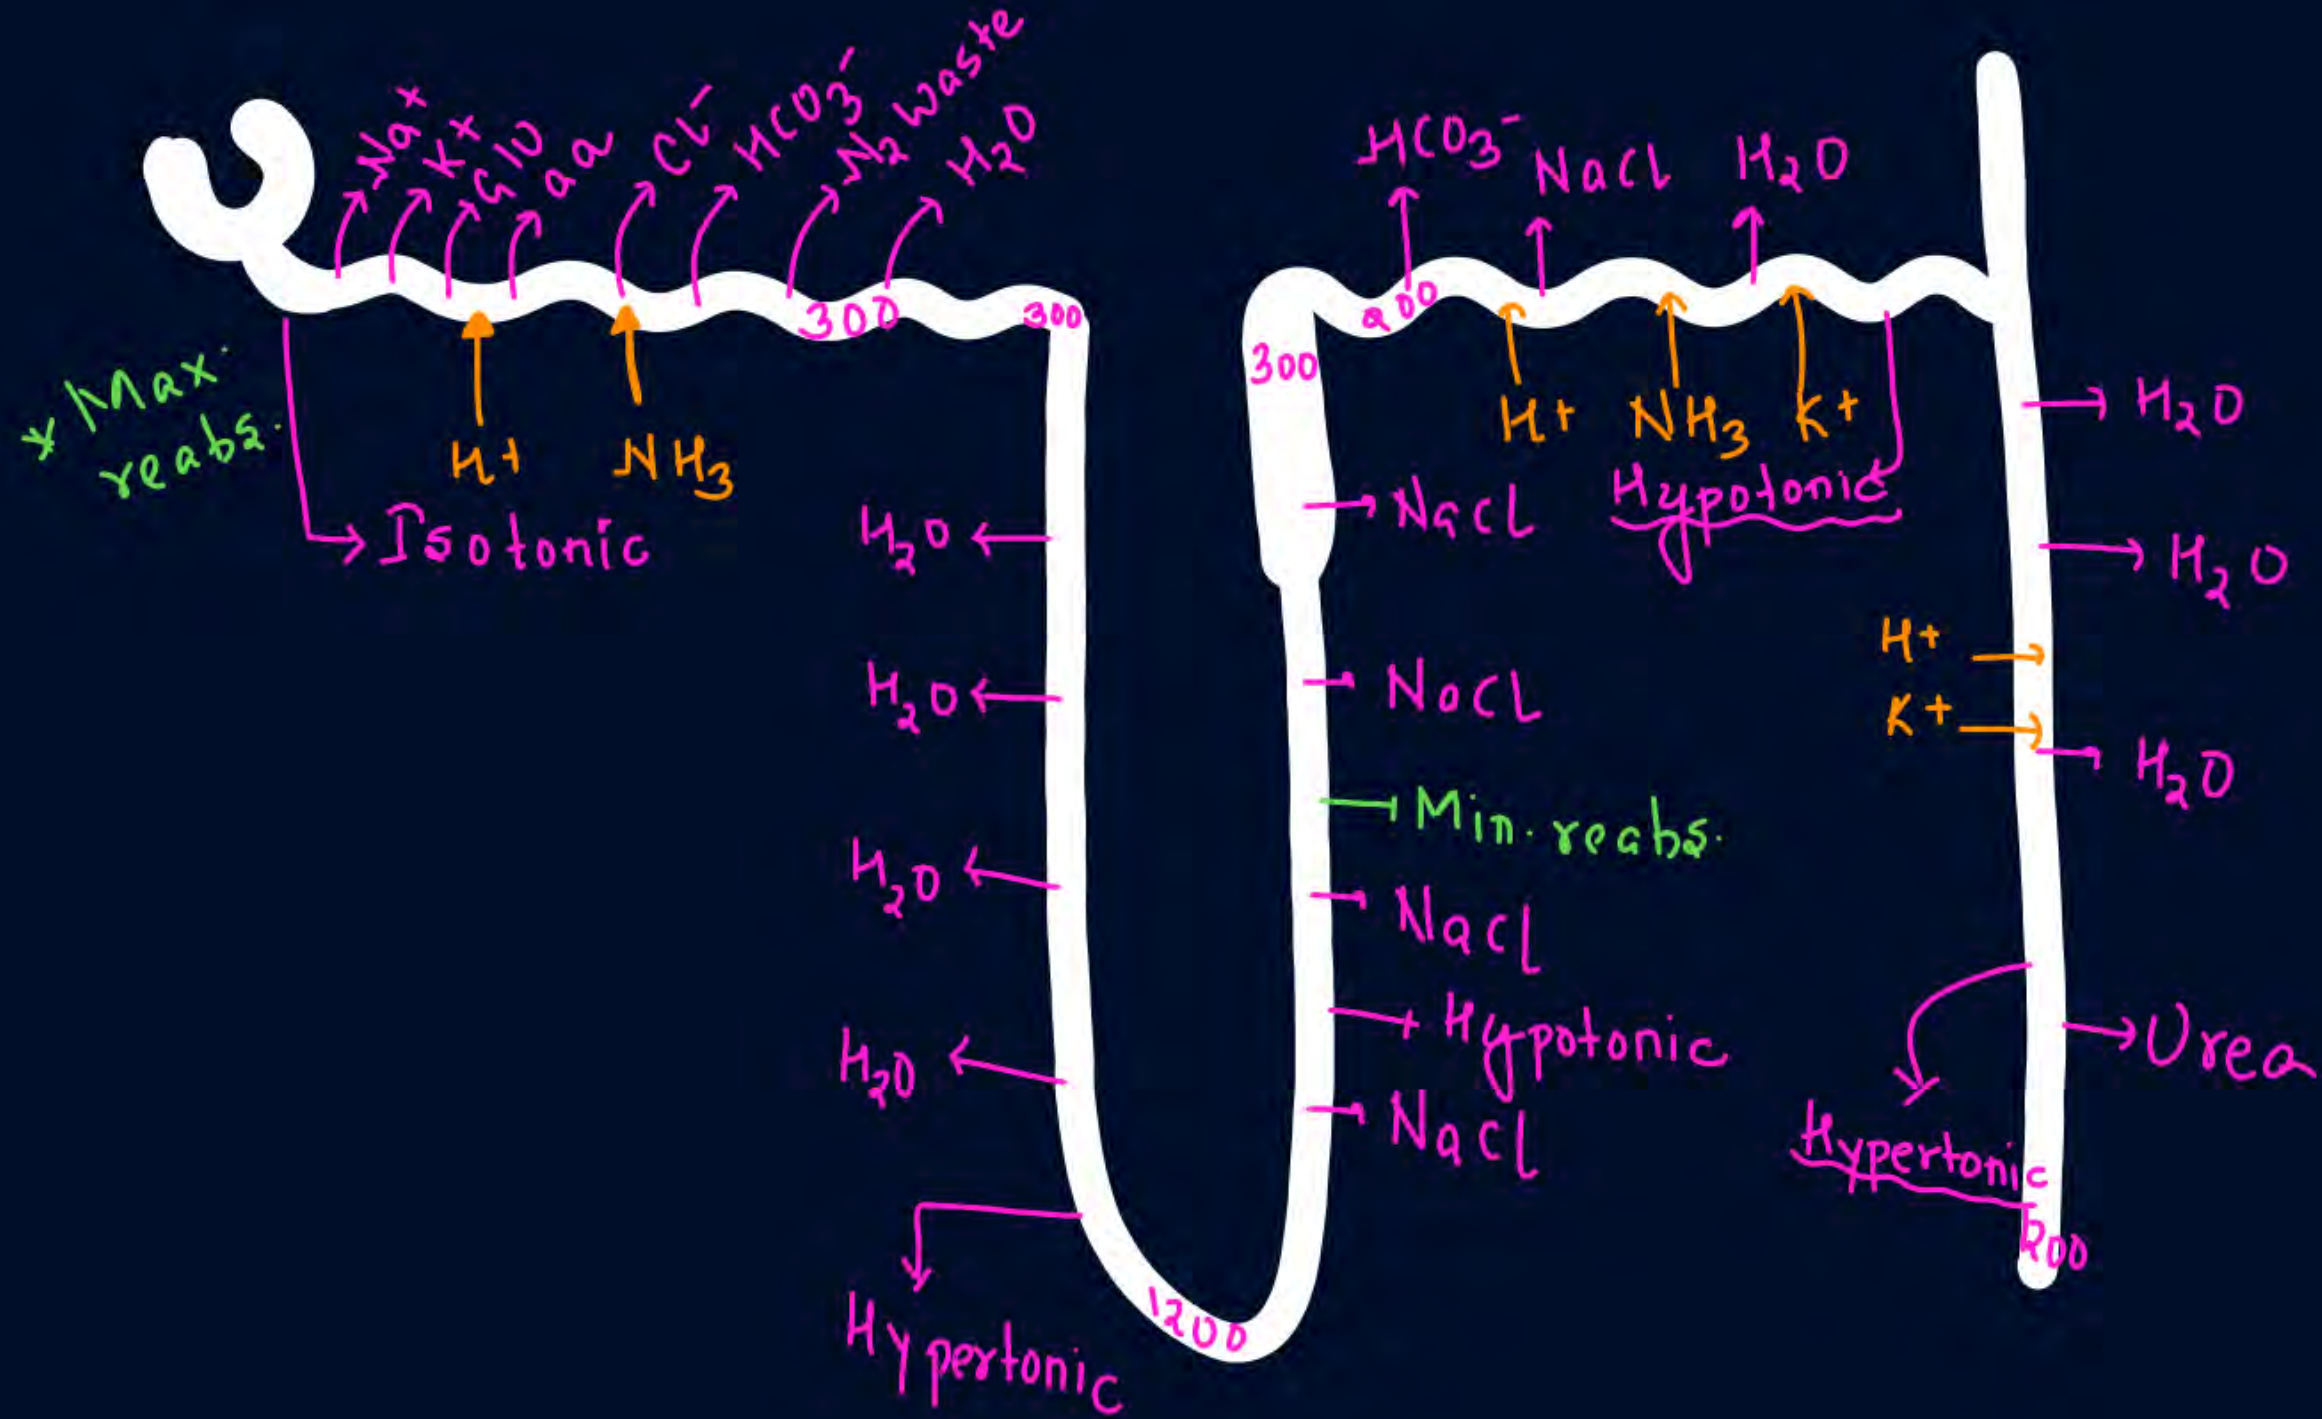 Na+
K+
Glu
aa
Cl-
HCO3-
N2 waste
H2O
300
300
* Max.
reabs.
H+
NH3
Isotonic
H2O
H2O
H2O
H2O
Hypertonic
1200
300
NaCl
NaCl
Min. reabs.
NaCl
Hypotonic
NaCl
HCO3-
NaCl
H2O
200
H+
NH3
K+
Hypotonic
H2O
H2O
H+
K+
H2O
Urea
Hypertonic